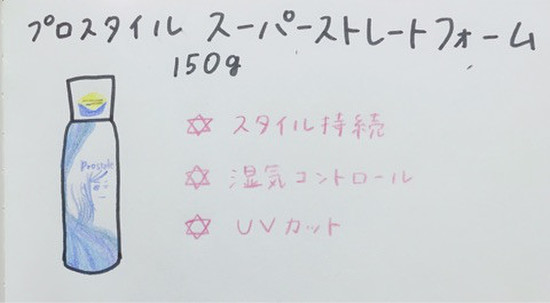 プロスタイル スーパーストレートフォーム
150g
Prostyle
✡ スタイル持続
✡ 湿気コントロール
✡ UVカット